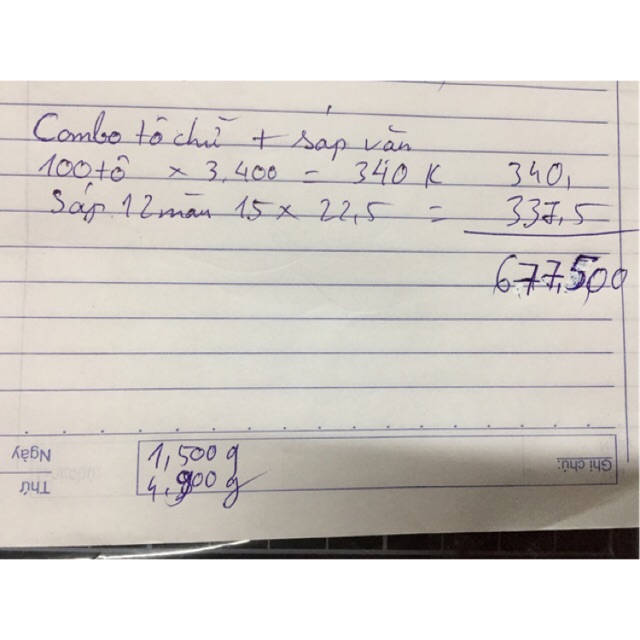 Combo tô chữ + sáp vặn
100 tô × 3.400 = 340 K 340,
Sáp 12 màu 15 × 22,5 = 337,5
677,500
Ngày
Thứ
1,500 g
g
Ghi chú: